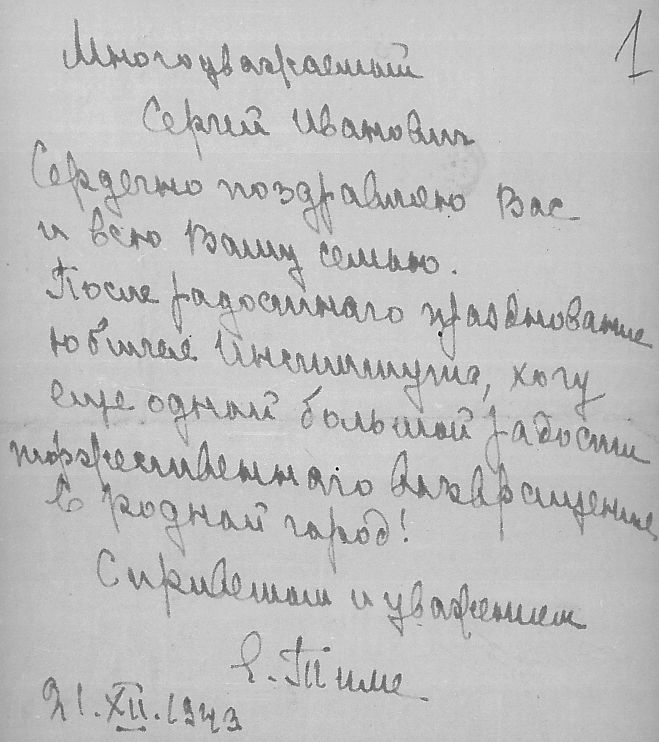 1
Многоуважаемый
Сергей Иванович
Сердечно поздравляю Вас
и всю Вашу семью.
После радостного празднования
юбилея Института, хочу
еще одной большой радости
торжественного возвращения
в родной город!
С приветом и уважением
Е. Тиме
21.XII.1943